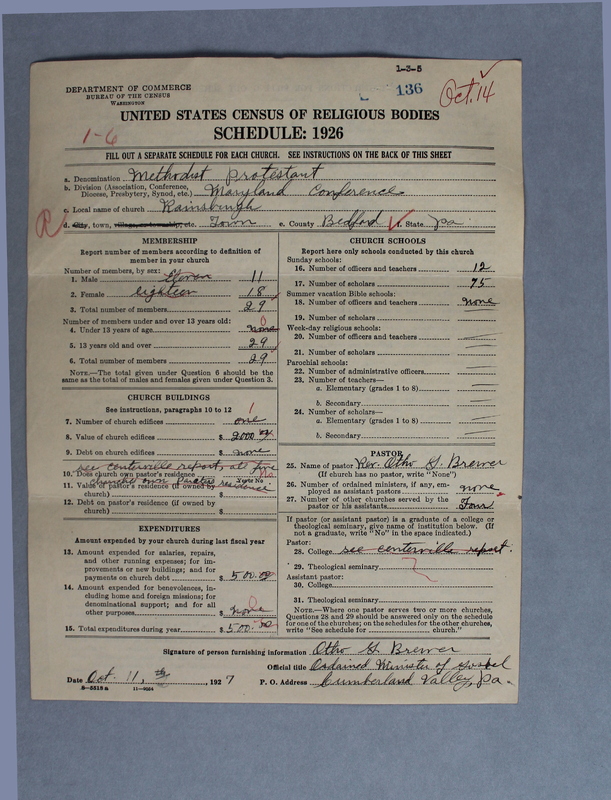 1-3-5
136
Oct. 14
DEPARTMENT OF COMMERCE
BUREAU OF THE CENSUS
WASHINGTON
UNITED STATES CENSUS OF RELIGIOUS BODIES
1-6
SCHEDULE: 1926
FILL OUT A SEPARATE SCHEDULE FOR EACH CHURCH. SEE INSTRUCTIONS ON THE BACK OF THIS SHEET
a. Denomination Methodist Protestant
b. Division (Association, Conference, Diocese, Presbytery, Synod, etc.) Maryland Conference
c. Local name of church Rainsburgh
R
d. City, town, village, or township, etc. Town e. County Bedford f. State Pa
MEMBERSHIP
Report number of members according to definition of
member in your church
Number of members, by sex:
1. Male Eleven 11
2. Female eighteen 18
3. Total number of members 29
Number of members under and over 13 years old:
4. Under 13 years of age none 0
5. 13 years old and over 29
6. Total number of members 29
NOTE.—The total given under Question 6 should be
same as the total of males and females given under Question 3.
CHURCH BUILDINGS
See instructions, paragraphs 10 to 12
7. Number of church edifices one 1
8. Value of church edifices $ 2000.00
9. Debt on church edifices $ none
see centerville report, at five
10. Does church own pastor's residence Yes or No No
churches own residence
11. Value of pastor's residence (if owned by
church) $
12. Debt on pastor's residence (if owned by
church) $
EXPENDITURES
Amount expended by your church during last fiscal year
13. Amount expended for salaries, repairs,
and other running expenses; for im-
provements or new buildings; and for
payments on church debt $ 500.00
14. Amount expended for benevolences, in-
cluding home and foreign missions; for
denominational support; and for all
other purposes $ none
15. Total expenditures during year $ 500.00
CHURCH SCHOOLS
Report here only schools conducted by this church
Sunday schools:
16. Number of officers and teachers 12
17. Number of scholars 75
Summer vacation Bible schools:
18. Number of officers and teachers none
19. Number of scholars
Week-day religious schools:
20. Number of officers and teachers
21. Number of scholars
Parochial schools:
22. Number of administrative officers
23. Number of teachers—
a. Elementary (grades 1 to 8)
b. Secondary
24. Number of scholars—
a. Elementary (grades 1 to 8)
b. Secondary
PASTOR
25. Name of pastor Rev. Otho G. Brewer
(If church has no pastor, write "None")
26. Number of ordained ministers, if any, em-
ployed as assistant pastors none
27. Number of other churches served by the
pastor or his assistants Four
If pastor (or assistant pastor) is a graduate of a college or
theological seminary, give name of institution below. (If
not a graduate, write "No" in the space indicated.)
Pastor:
28. College see centerville report.
29. Theological seminary
Assistant pastor:
30. College
31. Theological seminary
NOTE.—Where one pastor serves two or more churches,
Questions 28 and 29 should be answered only on the schedule
for one of the churches; on the schedules for the other churches,
write "See schedule for church."
Signature of person furnishing information Otho G. Brewer
Official title Ordained Minister of Gospel
Date Oct. 11, th 1927 P. O. Address Cumberland Valley, Pa.
8-5513a 11-9054